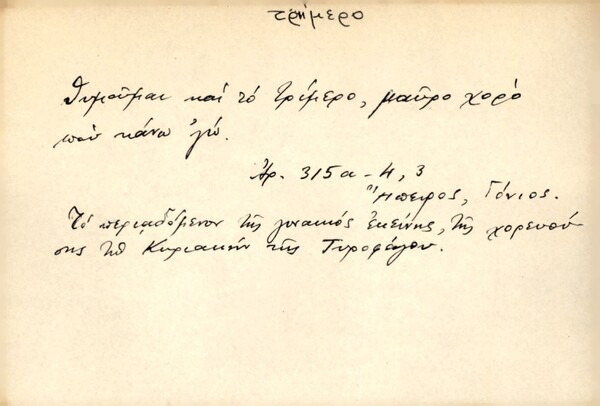 τρήμερο
Θυμοῦμαι καί τό τρίμερο, μαῦρο χορό
πού κάνω 'γώ.
Ἀρ. 315α - 4, 3
Ἤπειρος, Γόνιος.
Τό περιᾳδόμενον τῆς γυναικός ἐκείνης, τῆς χορευού-
σης τῇ Κυριακήν τῆς Τυροφάγου.